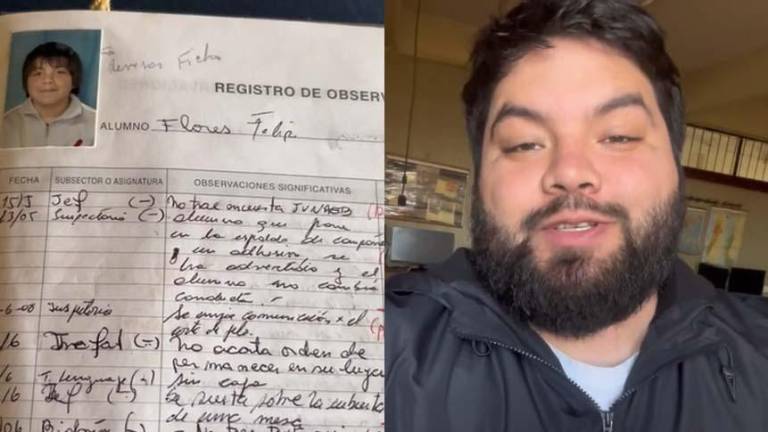 Ficha
REGISTRO DE OBSER
ALUMNO Flores Felip
FECHA SUBSECTOR O ASIGNATURA OBSERVACIONES SIGNIFICATIVAS
15/5 Jef (-) No trae encuesta JUNAEB
13/05 Inspectoria (-) alumno que pone
en la espalda de
un adhesivo, se
ha advertido y el
alumno no cambia
conducta.-
-6-08 Inspectoria Se envia comunicación x el
corte de pelo.
/6 (-) No acata orden de
permanecer en su lugar
/6 T. Lenguaje (-) sin capa
/6 Jef (-) Se sienta sobre la cubierta
de una mesa
Biología (-)